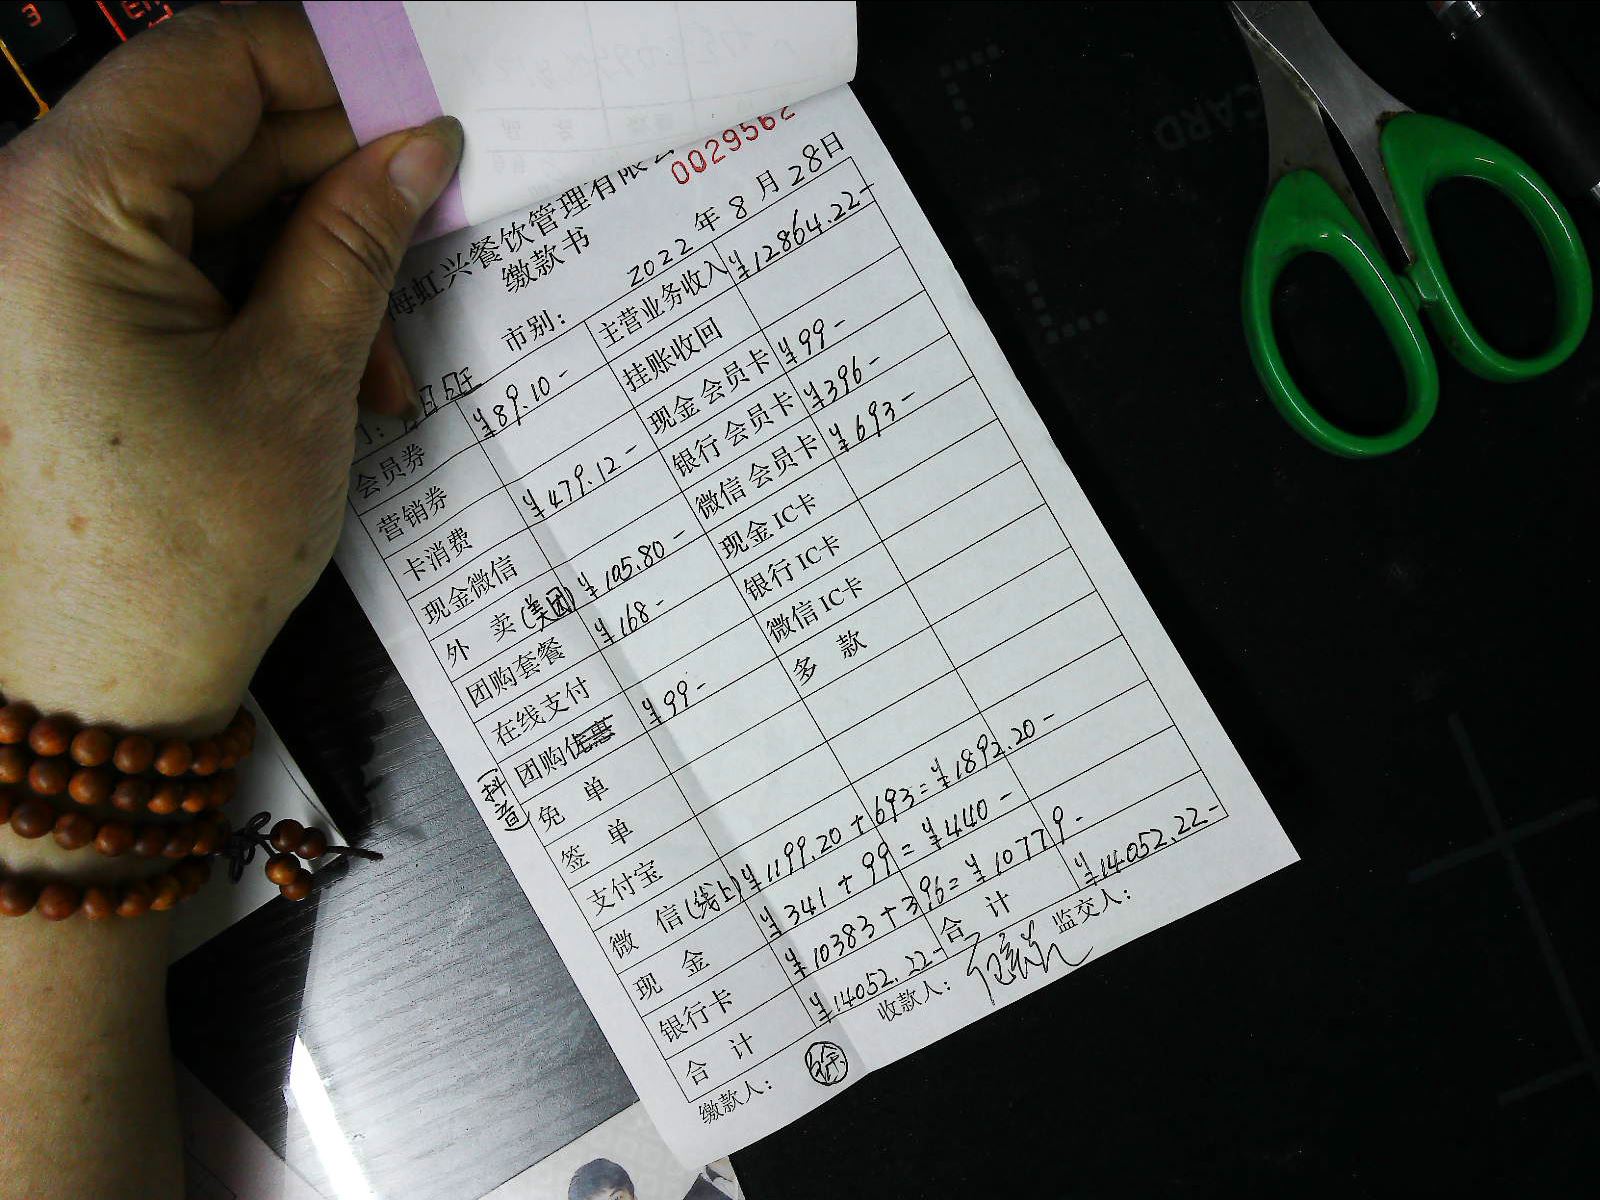 0029562
海虹兴餐饮管理有限公
缴款书
市别: 2022年8月28日
会员券 ¥89.10- 主营业务收入 ¥12864.22-
营销券 挂账收回
卡消费 ¥479.12- 现金会员卡 ¥99-
现金微信 银行会员卡 ¥396-
外卖(美团) ¥105.80- 微信会员卡 ¥693-
团购套餐 ¥168- 现金IC卡
在线支付 银行IC卡
团购 ¥99- 微信IC卡
抖音
免单 多款
签单
支付宝
微信(线上) ¥1199.20+693=¥1892.20-
现金 ¥341+99=¥440-
银行卡 ¥10383+396=¥10779-
合计 ¥14052.22- 合计 ¥14052.22-
缴款人: 徐 收款人: 监交人:
CARD
3